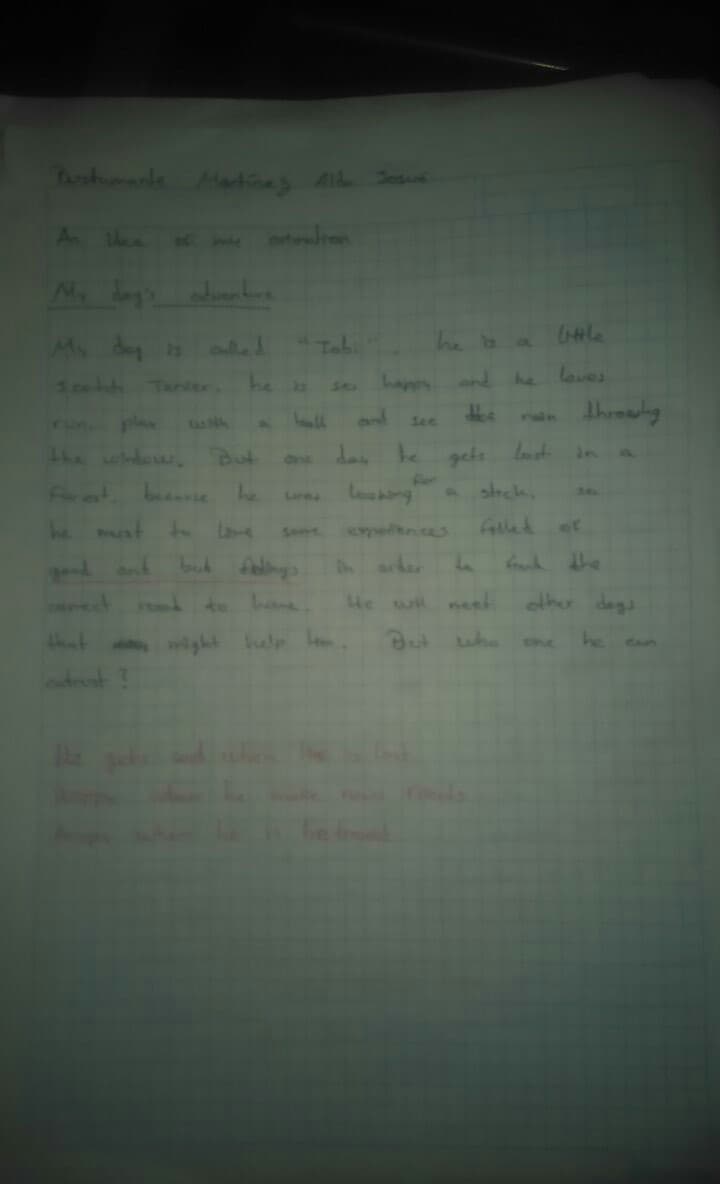 Bustamante Martínez Aldo Josué
An idea of my animation
My dog's adventure
My dog is called "Tobi". he is a little
Scotch Terrier. he is so happy and he loves
run, play with a ball and see the rain throwing
the window. But one day he gets lost in a
forest, because he was looking for a stick, so
he must to live some experiences filled of
good and bad feelings in order to find the
correct road to home. He will meet other dogs
that might help him. But who one he can
entrust?
He gets sad when he is lost
Happy when he make new friends
Angry when he is betrayed